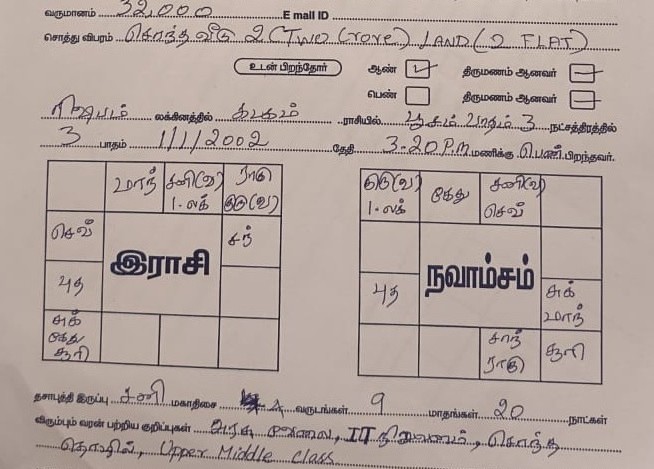 வருமானம் 32,000 E mail ID
சொத்து விபரம் சொந்த வீடு 2 (Two Crore) LAND (2 FLAT)
உடன் பிறந்தோர் ஆண் திருமணம் ஆனவர்
பெண் திருமணம் ஆனவர்
ரிஷபம் லக்கினத்தில் கடகம் ராசியில் பூசம் பாதம் 3 நட்சத்திரத்தில்
3 பாதம் 1/1/2002 தேதி 3-20 P.m மணிக்கு பெண் பிறந்தவர்.
மாந் சனி(வ) ராகு குரு(வ) (வ) கேது சனி(வ)
1-லக் குரு(வ) 1-லக் செவ்
செவ் சந்
இராசி நவாம்சம்
புத புத சுக்
மாந்
சுக் சாந் சூரி
கேது ராகு
சூரி
தசாபுத்தி இருப்பு சனி மகாதிசை வருடங்கள் 9 மாதங்கள் 20 நாட்கள்
விரும்பும் வரன் பற்றிய குறிப்புகள் அரசு வேலை, IT நிறுவனம், சொந்த
தொழில், Upper Middle Class